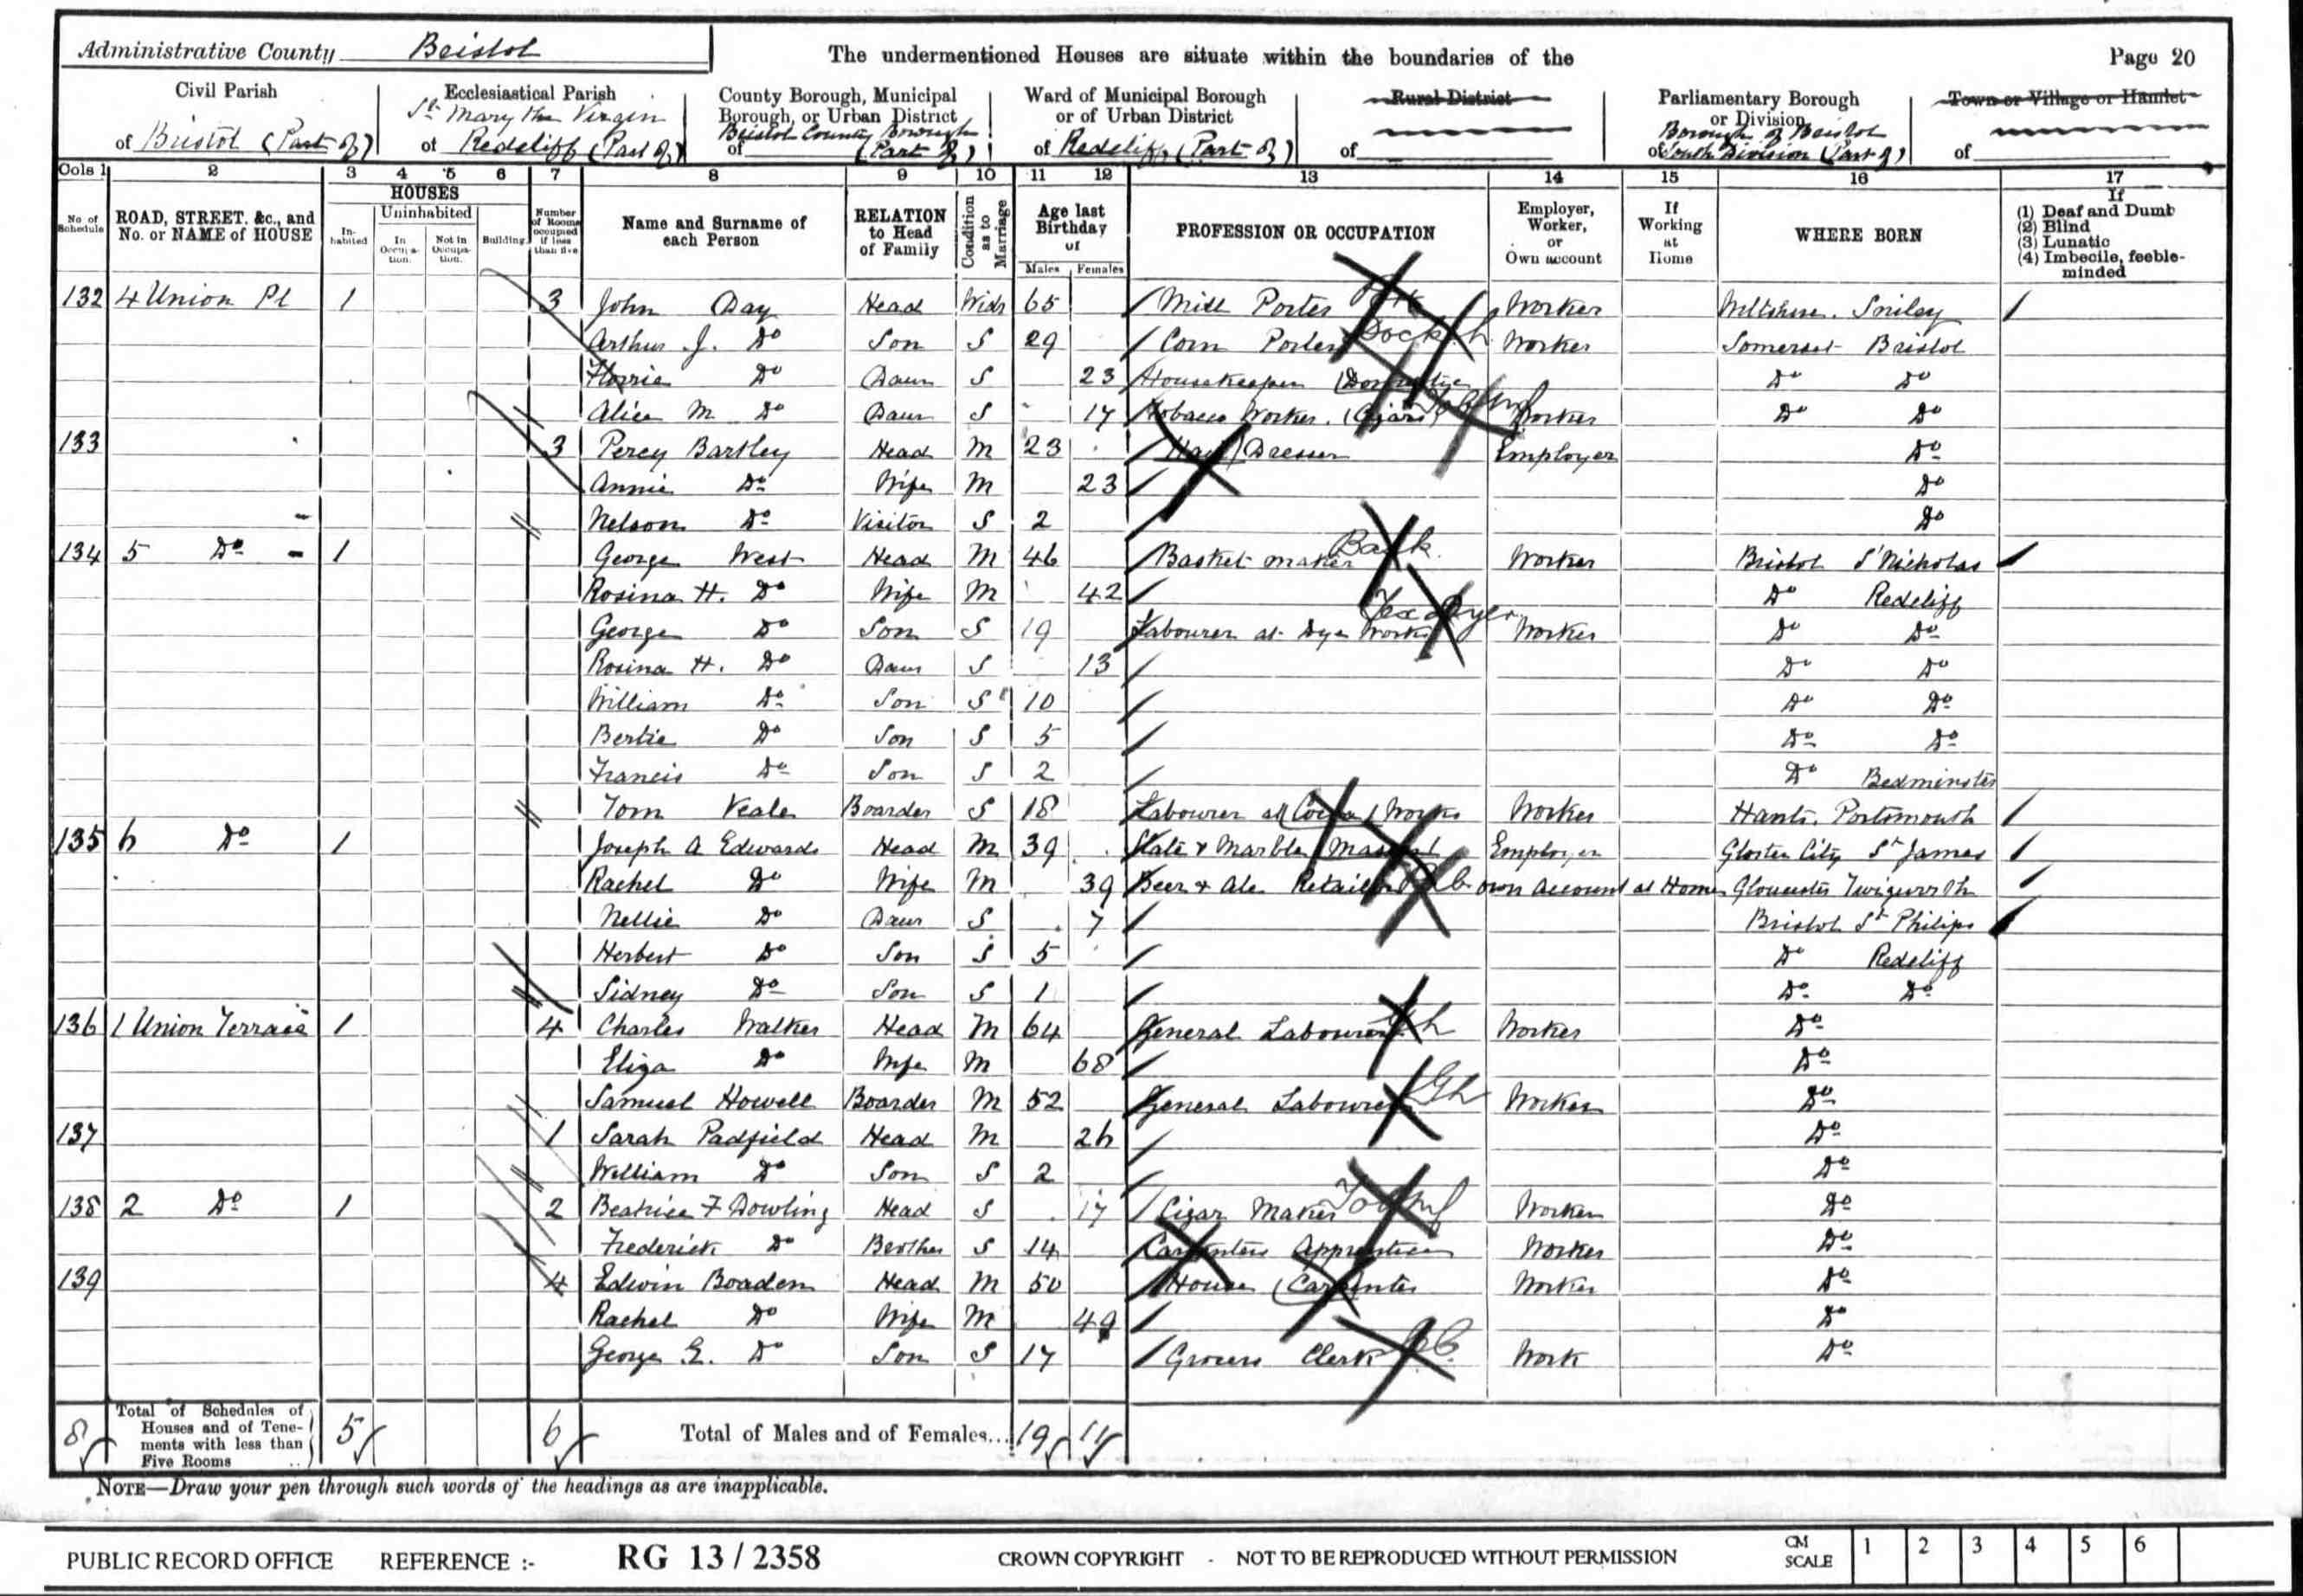 Administrative County Bristol The undermentioned Houses are situate within the boundaries of the Page 20
Civil Parish Ecclesiastical Parish County Borough, Municipal Borough, or Urban District Ward of Municipal Borough or of Urban District Rural District Parliamentary Borough or Division Town or Village or Hamlet
of Bristol (Part of) of St Mary the Virgin Redcliff (Part of) of Bristol County Borough (Part of) of Redcliff (Part of) of of Borough of Bristol South Division (Part of) of
Cols 1 2 3 4 5 6 7 8 9 10 11 12 13 14 15 16 17
No of Schedule ROAD, STREET. &c., and No. or NAME of HOUSE HOUSES Inhabited Uninhabited In Occupation. Not in Occupation. Building Number of Rooms occupied if less than five Name and Surname of each Person RELATION to Head of Family Condition as to Marriage Age last Birthday of Males Females PROFESSION OR OCCUPATION Employer, Worker, or Own account If Working at Home WHERE BORN If (1) Deaf and Dumb (2) Blind (3) Lunatic (4) Imbecile, feeble-minded
132 4 Union Pl 1 3 John Day Head Widr 65 Mill Porter Worker Wiltshire.
Arthur J. Do Son S 29 Corn Porter Dock L Worker Somerset Bristol
Florrie Do Daur S 23 Housekeeper (Domestic Do Do
Alice M Do Daur S 17 Tobacco Worker. (Cigars) Worker Do Do
133 3 Percy Bartley Head M 23 Hair Dresser Employer Do
Annie Do Wife M 23 Do
Nelson Do Visitor S 2 Do
134 5 Do 1 George West Head M 46 Basket maker Worker Bristol St Nicholas
Rosina H. Do Wife M 42 Do Redcliff
George Do Son S 19 Labourer at Dye Works Worker Do Do
Rosina H. Do Daur S 13 Do Do
William Do Son S 10 Do Do
Bertie Do Son S 5 Do Do
Francis Do Son S 2 Do Bedminster
Tom Veale Boarder S 18 Labourer at Cocoa Works Worker Hants. Portsmouth
135 6 Do 1 Joseph A Edwards Head M 39 Slate & Marble Mason Employer Gloster City St James
Rachel Do Wife M 39 Beer & Ale Retailer own account at Home Gloucester Twigworth
Nellie Do Daur S 7 Bristol St Philips
Herbert Do Son S 5 Do Redcliff
Sidney Do Son S 1 Do Do
136 1 Union Terrace 1 4 Charles Walker Head M 64 General Labourer Worker Do
Eliza Do Wife M 68 Do
Samuel Howell Boarder M 52 General Labourer GL Worker Do
137 1 Sarah Padfield Head M 26 Do
William Do Son S 2 Do
138 2 Do 1 2 Beatrice F Dowling Head S 17 Cigar Maker Worker Do
Frederick Do Brother S 14 Carpenters Apprentice Worker Do
139 4 Edwin Boaden Head M 50 House Carpenter Worker Do
Rachel Do Wife M 49 Do
George E. Do Son S 17 Grocers Clerk Work Do
8 Total of Schedules of Houses and of Tenements with less than Five Rooms 5 6 Total of Males and of Females... 19 11
NOTE—Draw your pen through such words of the headings as are inapplicable.
PUBLIC RECORD OFFICE REFERENCE :- RG 13 / 2358 CROWN COPYRIGHT - NOT TO BE REPRODUCED WITHOUT PERMISSION CM SCALE 1 2 3 4 5 6